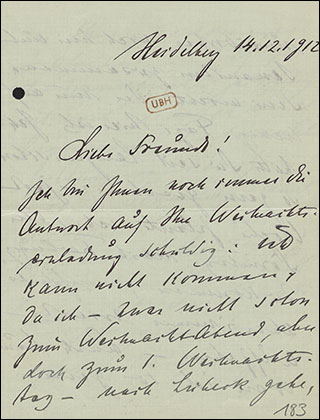 Heidelberg 14.12.1912
UBH
Liebe Freunde!
Ich bin Ihnen noch immer die
Antwort auf Ihre Weihnachts-
einladung schuldig. Ich
kann nicht kommen,
da ich – zwar nicht schon
zum Weihnachtsabend, aber
doch zum 1. Weihnachts-
tag – nach Lübeck gehe,
183